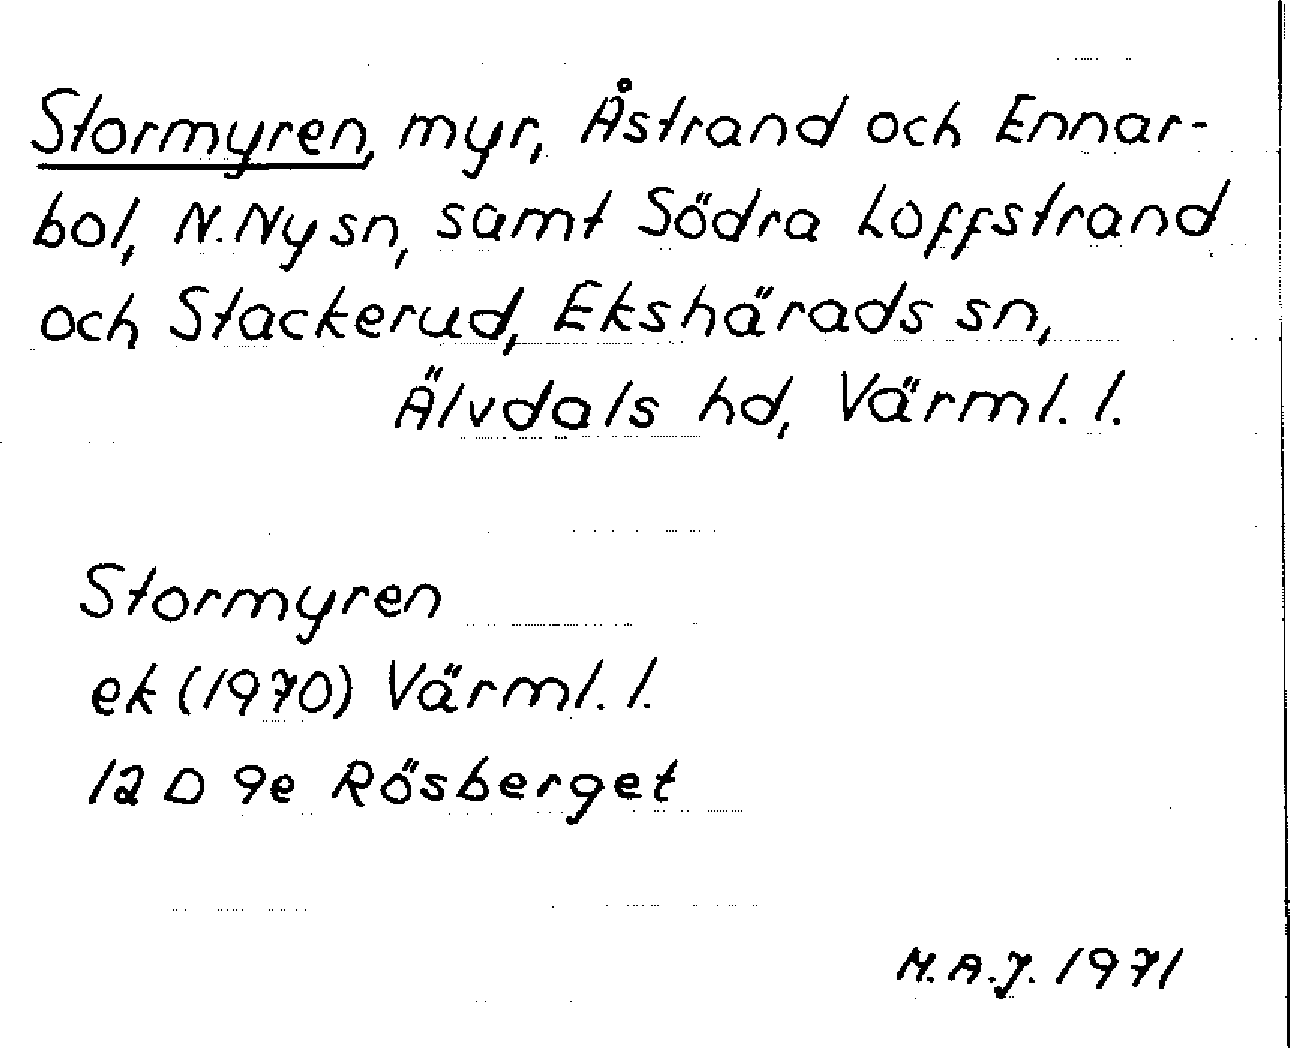 Stormyren, myr, Åstrand och Ennar-
bol, N. Ny sn, samt Södra Loffstrand
och Stackerud, Ekshärads sn,
Älvdals hd, Värml. l.
Stormyren
ek (1970) Värml. l.
12 D 9e Rösberget
M.A.J. 1971